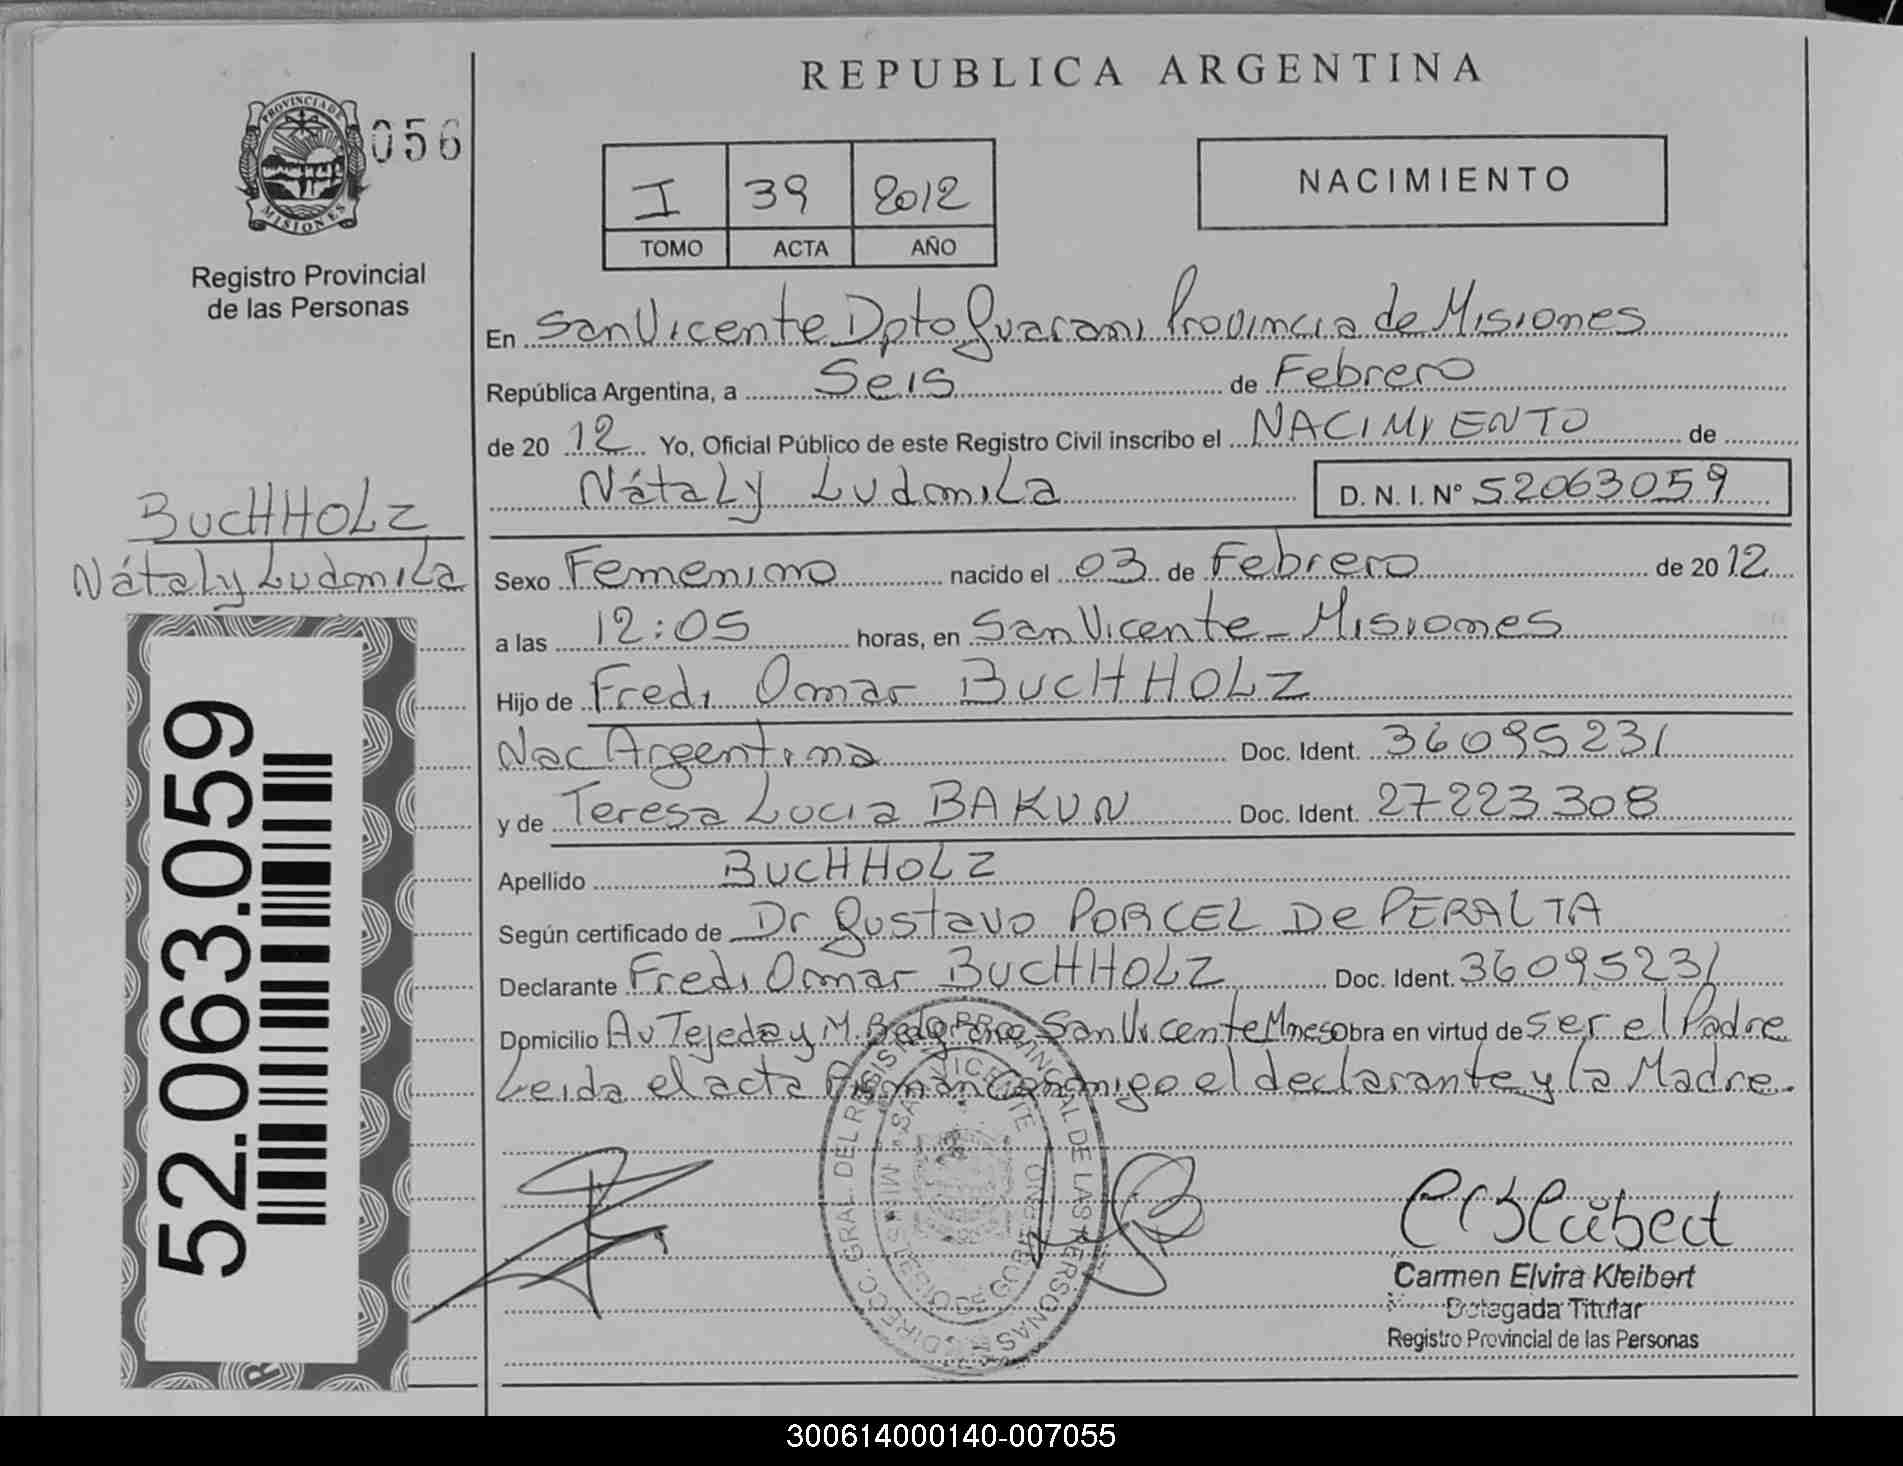 REPUBLICA ARGENTINA
PROVINCIA DE MISIONES
056
Registro Provincial
de las Personas
I 39 2012
TOMO ACTA AÑO
NACIMIENTO
En San Vicente Dpto Guarani Provincia de Misiones
República Argentina, a Seis de Febrero
de 2012 Yo, Oficial Público de este Registro Civil inscribo el NACIMIENTO de
Nátaly Ludmila D.N.I. Nº 52063059
BUCHHOLZ
Nátaly Ludmila
Sexo Femenino nacido el 03 de Febrero de 2012
a las 12:05 horas, en San Vicente - Misiones
Hijo de Fredi Omar BUCHHOLZ
Nac Argentina Doc. Ident. 36095231
y de Teresa Lucia BAKUN Doc. Ident. 27223308
Apellido BUCHHOLZ
Según certificado de Dr Gustavo PORCEL De PERALTA
Declarante Fredi Omar BUCHHOLZ Doc. Ident. 36095231
Domicilio Av Tejeda y M. San Vicente Mnes obra en virtud de ser el Padre
Leida el acta Firman Conmigo el declarante y la Madre.
52.063.059
Carmen Elvira Kleibert
Delegada Titular
Registro Provincial de las Personas
300614000140-007055